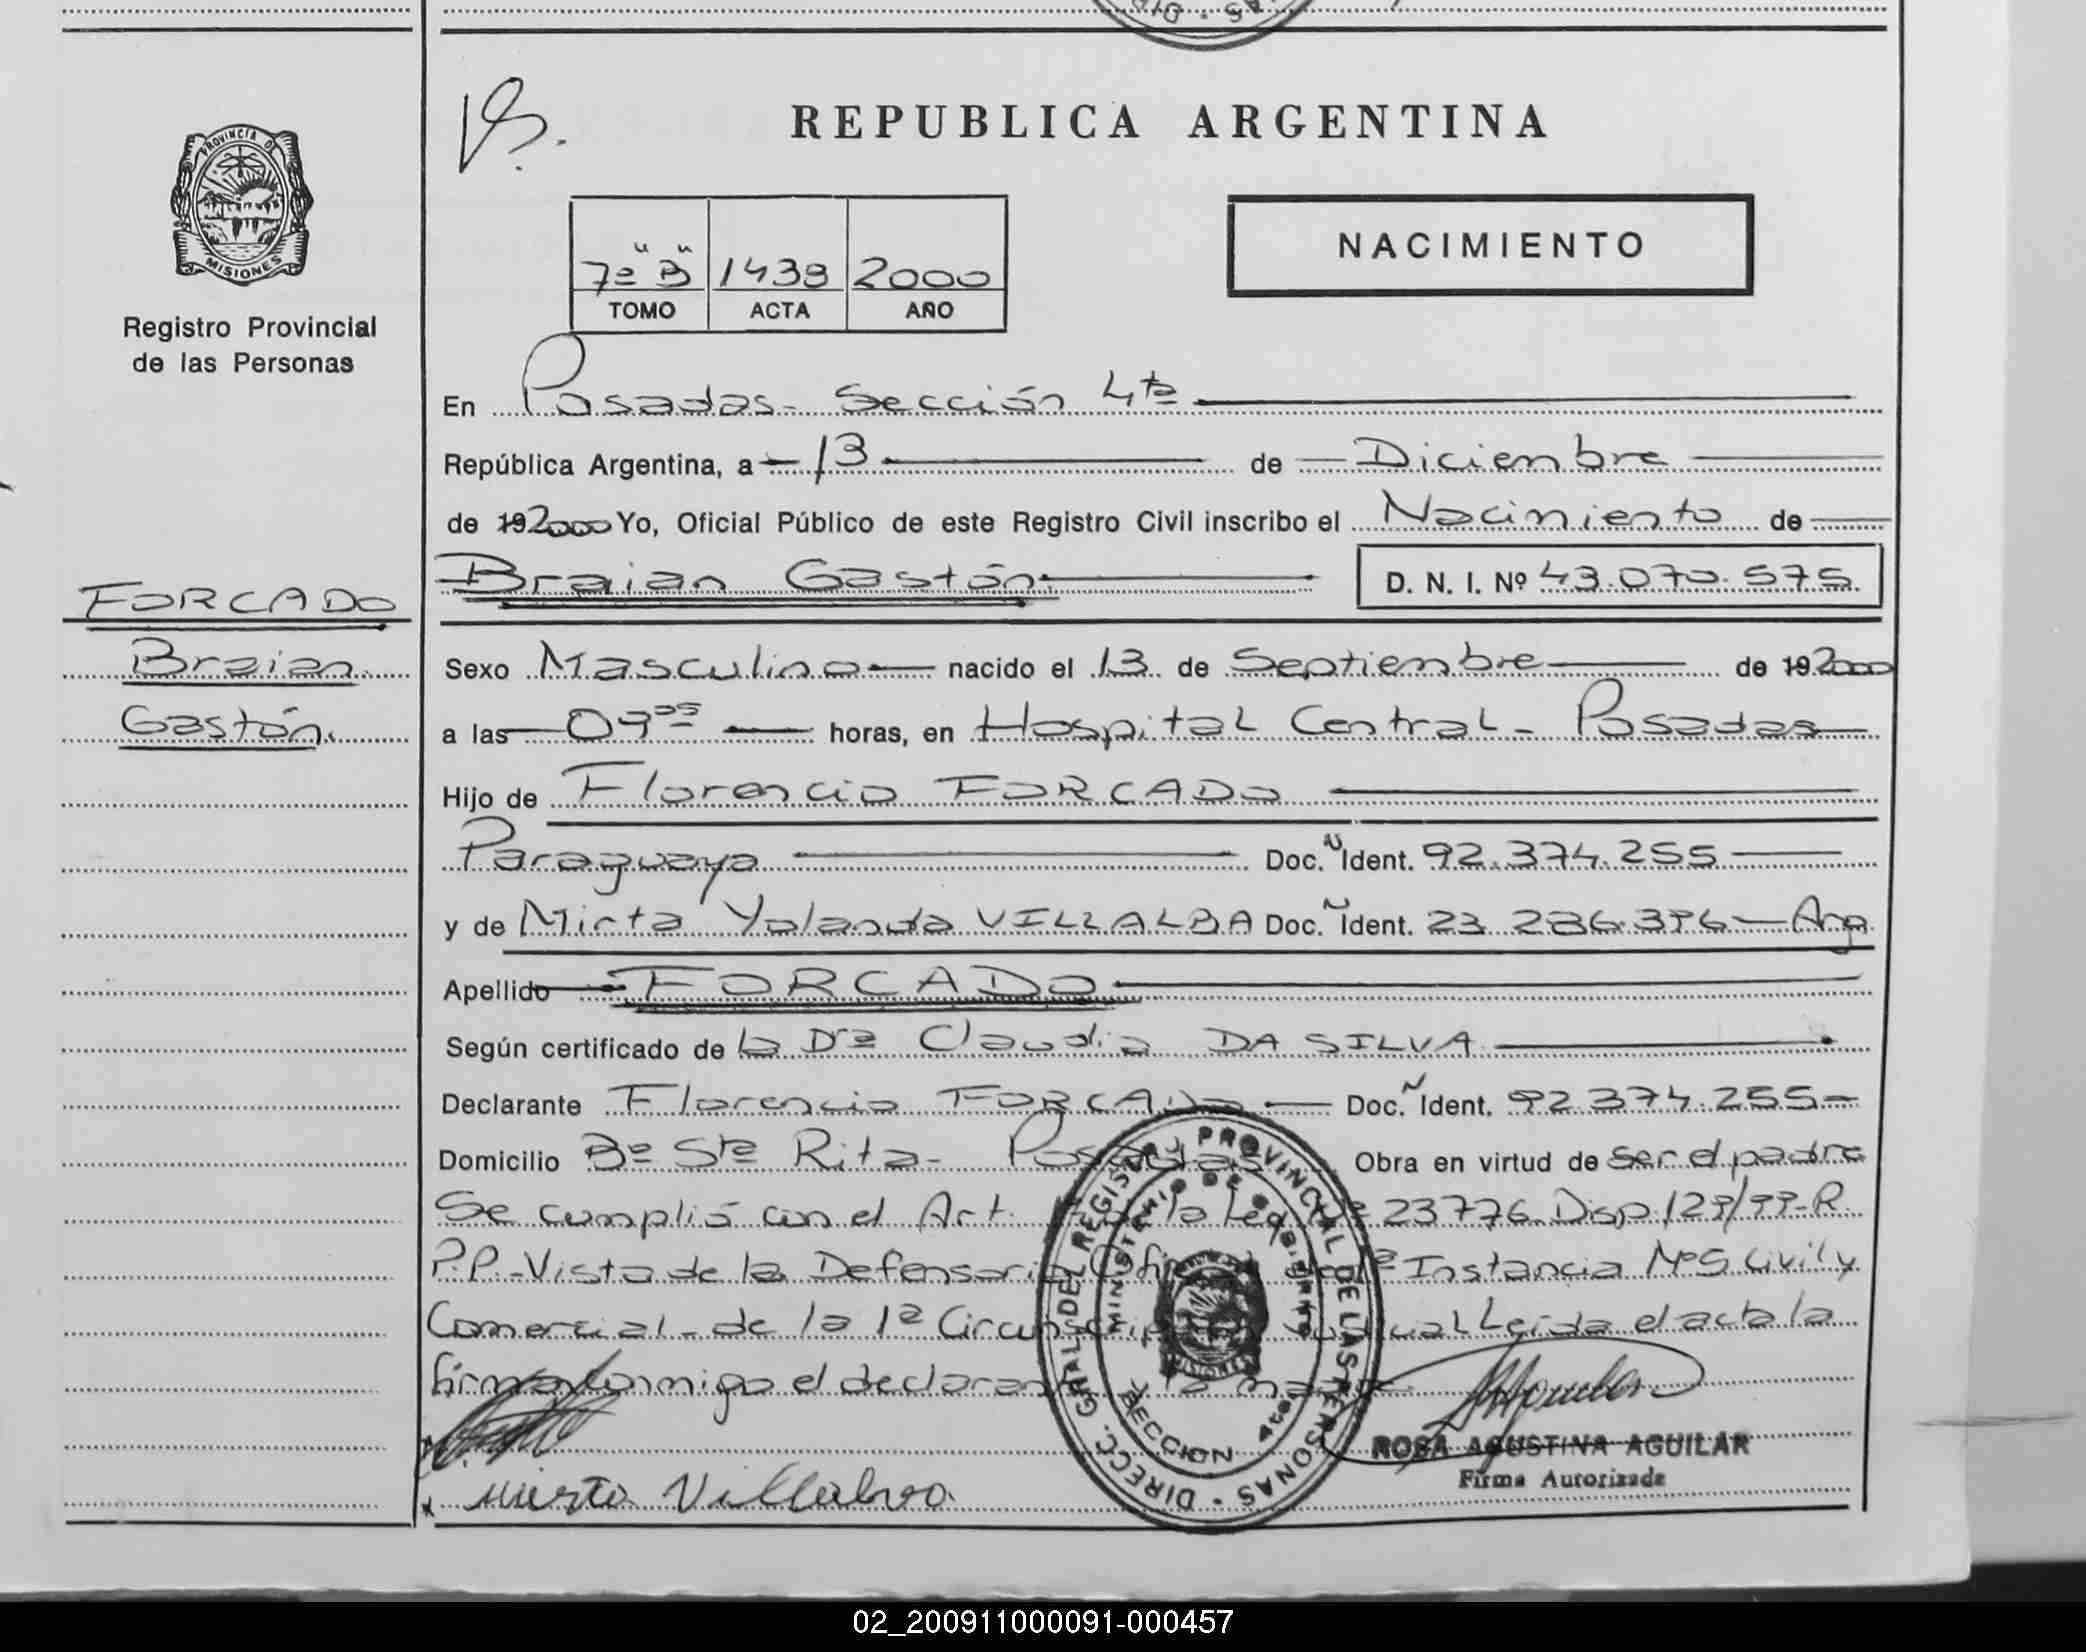 REPUBLICA ARGENTINA
PROVINCIA DE
MISIONES
Registro Provincial
de las Personas
7ª "B" 1439 2000
TOMO ACTA AÑO
NACIMIENTO
En Posadas - Sección 4ta
República Argentina, a 13 de Diciembre
de 192000 Yo, Oficial Público de este Registro Civil inscribo el Nacimiento de
Braian Gastón. D. N. I. Nº 43.070.575.
FORCADO
Braian
Gastón.
Sexo Masculino nacido el 13 de Septiembre de 192000
a las horas, en Hospital Central - Posadas
Hijo de Florencio FORCADO
Paraguaya Doc. Ident. 92.374.255
y de Mirta Yolanda VILLALBA Doc. Ident. 23.286.396 - Arg.
Apellido FORCADO
Según certificado de la Dra Claudia DA SILVA
Declarante Florencio FORCADO Doc. Ident. 92.374.255
Domicilio Bº Sta Rita - Posadas Obra en virtud de ser el padre
Se cumplió con el Art. de la Ley Nº 23776. Disp. 129/99-R.
P.P. - Vista de la Defensoria Oficial de 1ª Instancia Nº5 Civil y
Comercial - de la 1ª Circunscripción Judicial Leida el acta la
firman conmigo el declarante y la madre
Mirta Villalba
DIRECC. GRAL. DEL REGISTRO PROVINCIAL DE LAS PERSONAS
MINISTERIO DE GOBIERNO
SECCION 4ta.
MISIONES
ROSA AGUSTINA AGUILAR
Firma Autorizada
02_200911000091-000457